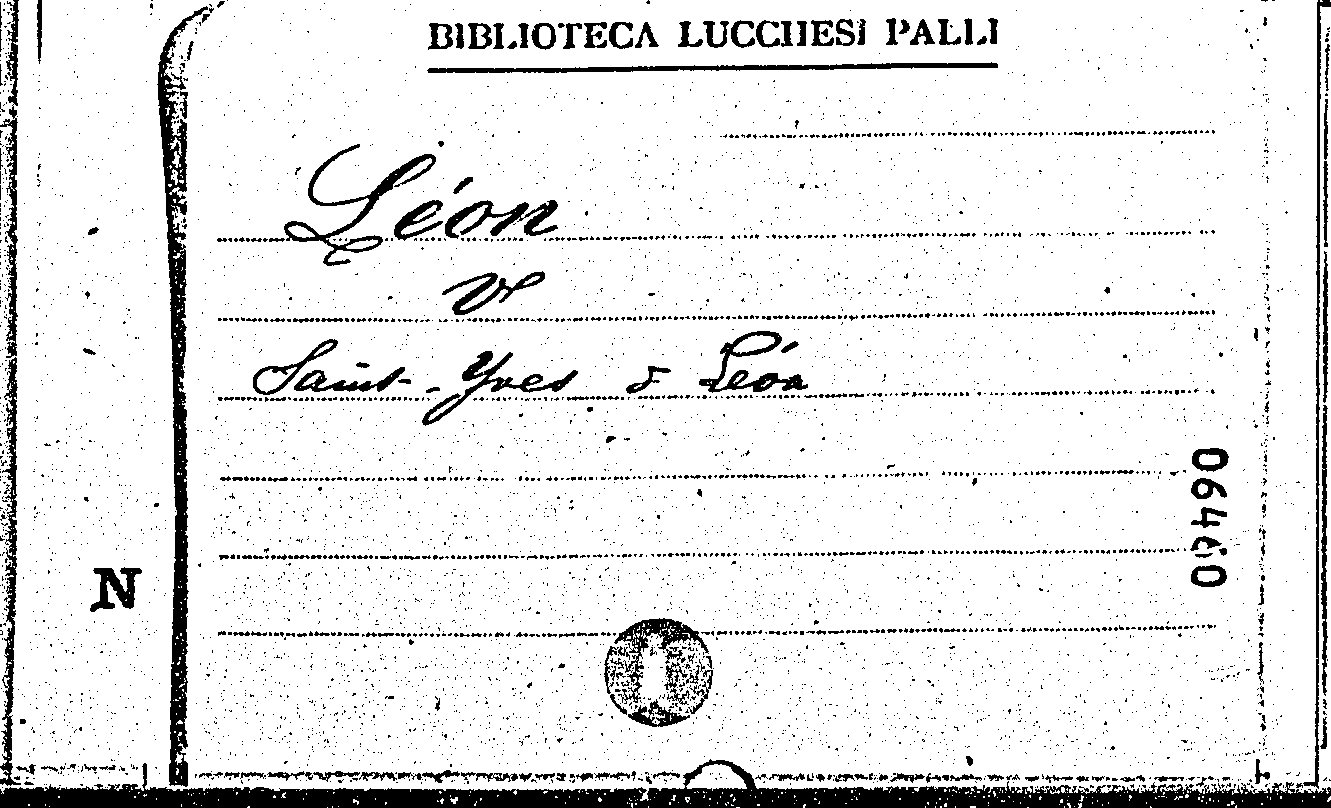 BIBLIOTECA LUCCHESI PALLI
Léon
V
Saint-Yves & Léon
N
06460